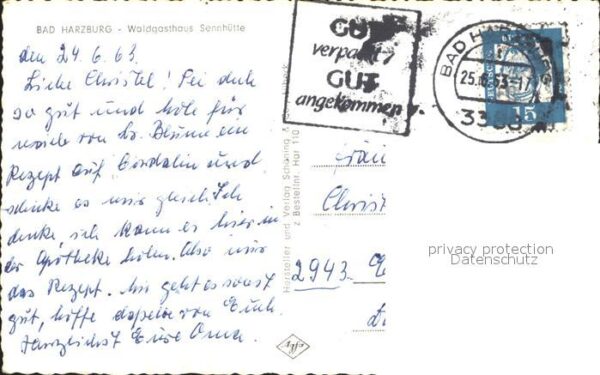 BAD HARZBURG - Waldgasthaus Sennhütte
den 24.6.63.
Liebe Christel! Sei doch
so gut und hole für
von Dr. Blume ein
Rezept auf Cordalin und
schicke es mir gleich. Ich
denke, ich kann es hier in
der Apotheke holen. Also nur
das Rezept. geht es sonst
gut, hoffe dasselbe von Euch.
Herzlichst Eure Oma.
GUT
verpackt
GUT
angekommen
BAD HARZBURG
25.6.63-17
3388
15
Hersteller und Verlag Schöning &
Bestellnr. Har 110
Fräu
Christ
2943
privacy protection
Datenschutz